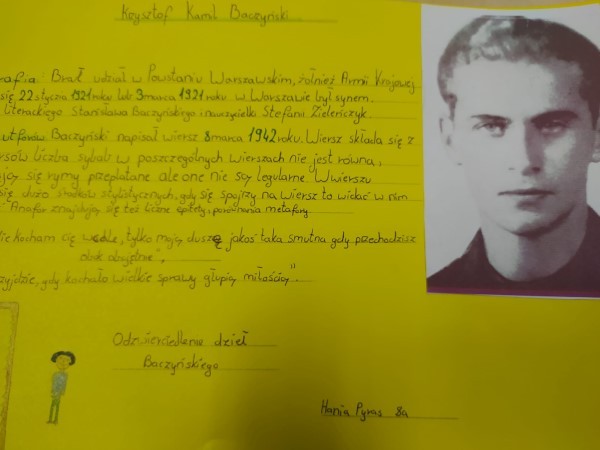 Krzysztof Kamil Baczyński
Brał udział w Powstaniu Warszawskim, żołnierz Armii Krajowej
się 22 stycznia 1921 roku lub 3 marca 1921 roku w Warszawie był synem.
Literackiego Stanisława Baczyńskiego i nauczycielki Stefani Zieleńczyk.
Baczyński napisał wiersz 8 marca 1942 roku. Wiersz składa się z
Liczba sylab w poszczególnych wierszach nie jest równa,
się rymy przeplatane ale one nie są legularne W wierszu
się dużo środków stylistycznych, gdy się spojrzy na wiersz to widać w nim
Anafor znajdują się też liczne epitety, porównania metafory
kocham cię wcale, tylko moją duszę jakoś taka smutna gdy przechodzisz
obok obojętnie",
gdy kochało wielkie sprawy głupią miłością".
Odzwierciedlenie dzieł
Baczyńskiego
Hania Pyras 8a